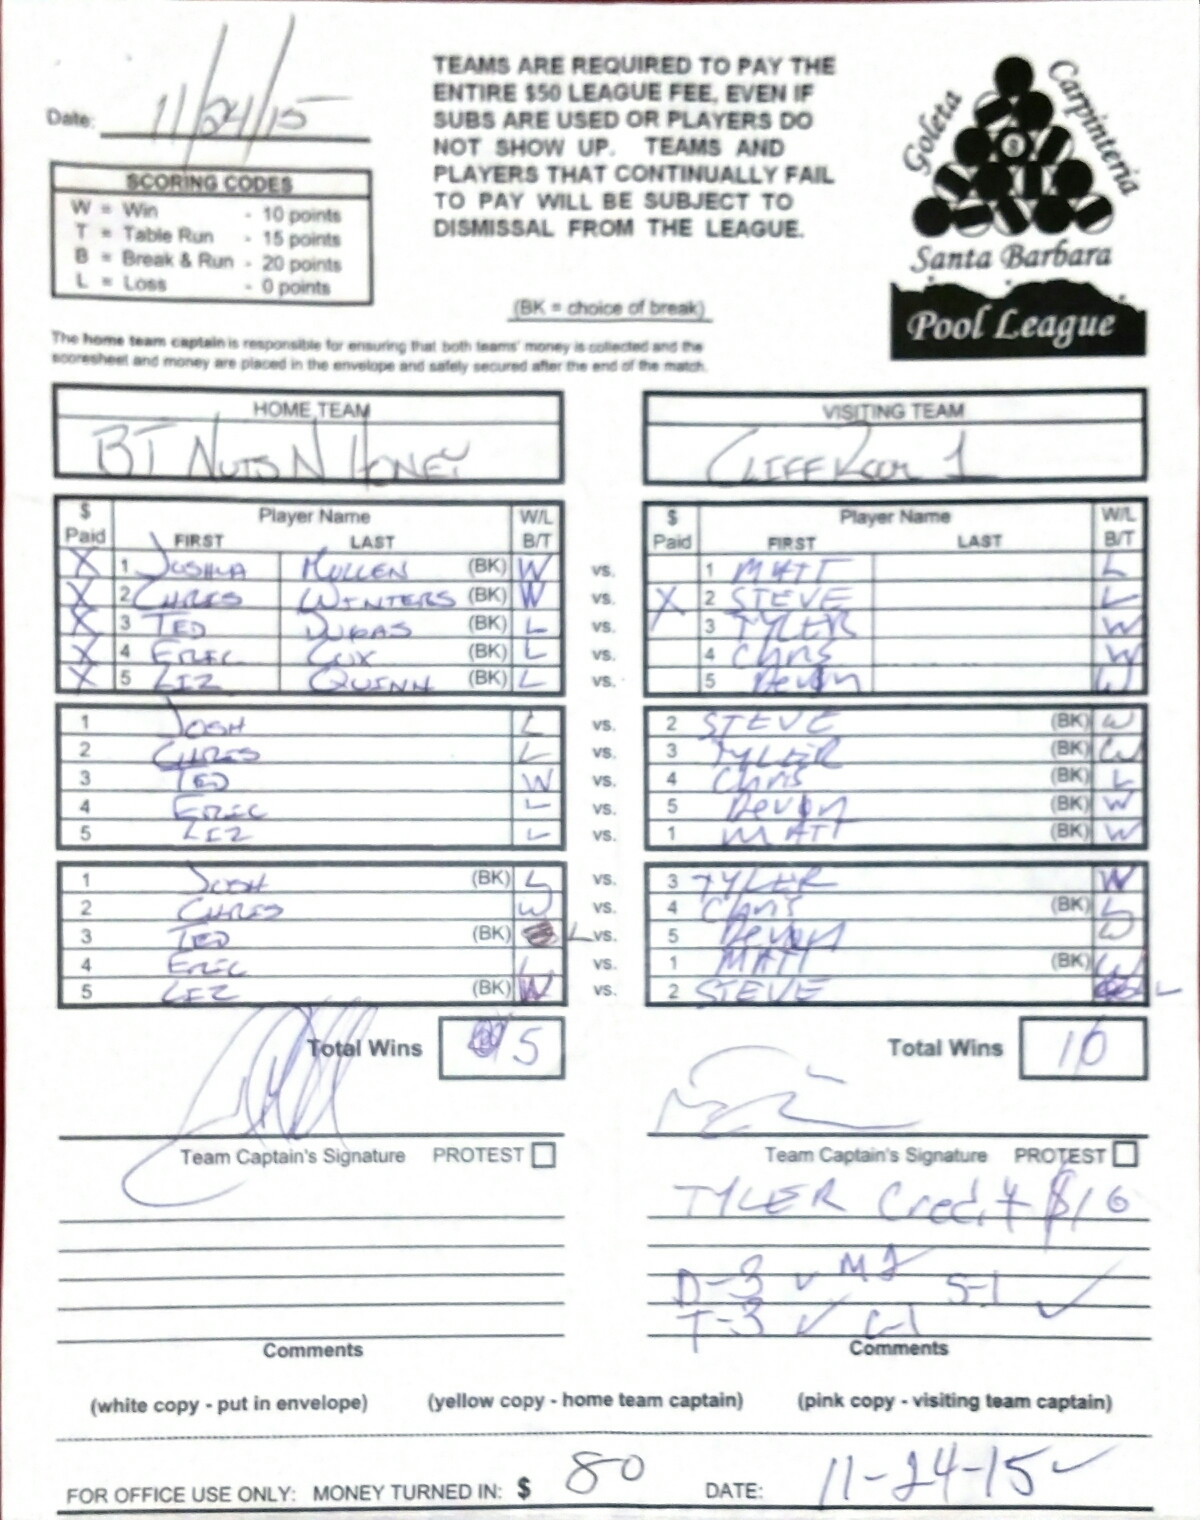 Date: 11/24/15
SCORING CODES
W = Win - 10 points
T = Table Run - 15 points
B = Break & Run - 20 points
L = Loss - 0 points
TEAMS ARE REQUIRED TO PAY THE
ENTIRE $50 LEAGUE FEE, EVEN IF
SUBS ARE USED OR PLAYERS DO
NOT SHOW UP. TEAMS AND
PLAYERS THAT CONTINUALLY FAIL
TO PAY WILL BE SUBJECT TO
DISMISSAL FROM THE LEAGUE.
(BK = choice of break)
Goleta
Carpinteria
8
Santa Barbara
Pool League
The home team captain is responsible for ensuring that both teams' money is collected and the
scoresheet and money are placed in the envelope and safely secured after the end of the match.
HOME TEAM VISITING TEAM
BT NUTS N HONEY CLIFF ROOM 1
$ Paid Player Name FIRST LAST W/L B/T $ Paid Player Name FIRST LAST W/L B/T
X 1 JOSHUA MULLEN (BK) W vs. 1 MATT L
X 2 CHRIS WINTERS (BK) W vs. X 2 STEVE L
X 3 TED DUGAS (BK) L vs. 3 TYLER W
X 4 ERIC COX (BK) L vs. 4 Chris W
X 5 LIZ QUINN (BK) L vs. 5 Devon W
1 JOSH L vs. 2 STEVE (BK) W
2 CHRIS L vs. 3 TYLER (BK) W
3 TED W vs. 4 Chris (BK) L
4 ERIC L vs. 5 Devon (BK) W
5 LIZ L vs. 1 MATT (BK) W
1 JOSH (BK) L vs. 3 TYLER W
2 CHRIS W vs. 4 Chris (BK) L
3 TED (BK) L vs. 5 Devon W
4 ERIC L vs. 1 MATT (BK) W
5 LIZ (BK) W vs. 2 STEVE L
Total Wins 5 Total Wins 10
Team Captain's Signature PROTEST Team Captain's Signature PROTEST
TYLER Credit $10
D-3 M2 S-1
T-3 C-1
Comments Comments
(white copy - put in envelope) (yellow copy - home team captain) (pink copy - visiting team captain)
FOR OFFICE USE ONLY: MONEY TURNED IN: $ 80 DATE: 11-24-15